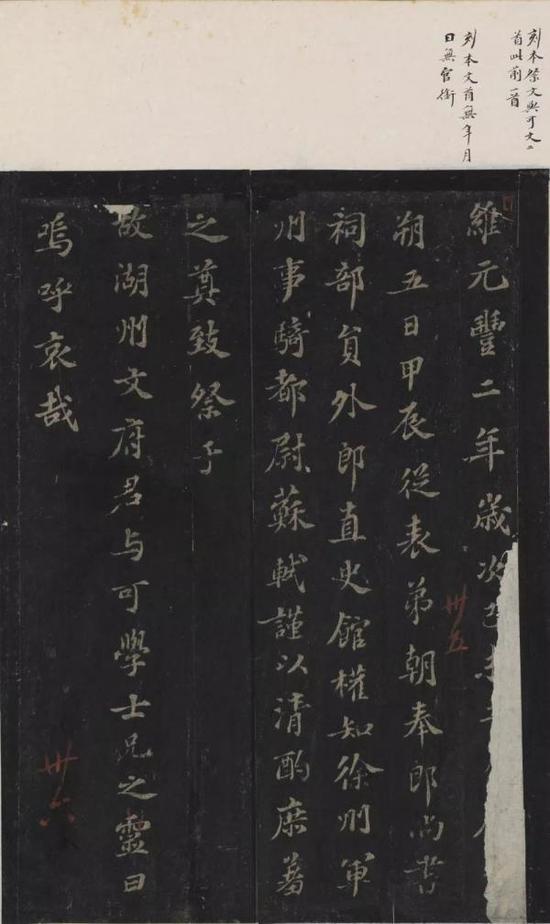 刻本祭文與可文二
首此前一首
刻本文首無年月
日無官銜
維元豐二年歲次己未
朔五日甲辰從表弟朝奉郎尚書
祠部員外郎直史館權知徐州軍
州事騎都尉蘇軾謹以清酌庶羞
之奠致祭于
故湖州文府君与可學士兄之靈曰
嗚呼哀哉
卅五
卅六